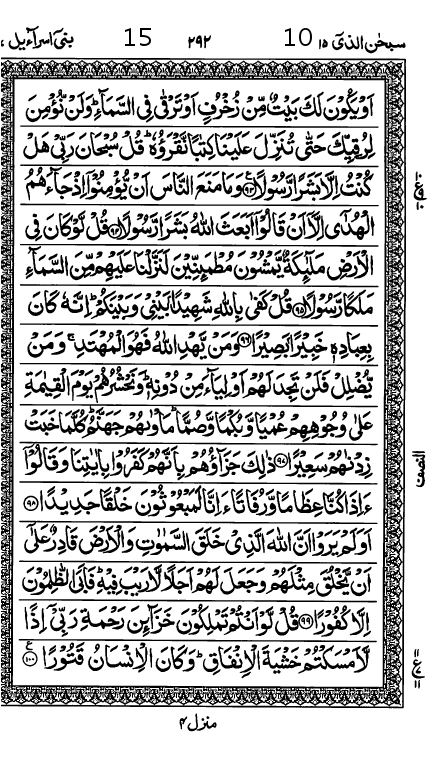 سبحٰن الذیٓ ۱۵ 10 ۲۹۲ 15 بنیٓ اسرآءیل ۱۷
اَوْ يَكُوْنَ لَكَ بَيْتٌ مِّنْ زُخْرُفٍ اَوْ تَرْقٰى فِى السَّمَآءِ ؕ وَلَنْ نُّؤْمِنَ
لِرُقِيِّكَ حَتّٰى تُنَزِّلَ عَلَيْنَا كِتٰبًا نَّقْرَؤُهٗ ؕ قُلْ سُبْحَانَ رَبِّىْ هَلْ
كُنْتُ اِلَّا بَشَرًا رَّسُوْلًا ۹۳ وَمَا مَنَعَ النَّاسَ اَنْ يُّؤْمِنُوْۤا اِذْ جَآءَهُمُ
الْهُدٰٓى اِلَّاۤ اَنْ قَالُوْۤا اَبَعَثَ اللّٰهُ بَشَرًا رَّسُوْلًا ۹۴ قُلْ لَّوْ كَانَ فِى
الْاَرْضِ مَلٰٓئِكَةٌ يَّمْشُوْنَ مُطْمَئِنِّيْنَ لَنَزَّلْنَا عَلَيْهِمْ مِّنَ السَّمَآءِ
مَلَكًا رَّسُوْلًا ۹۵ قُلْ كَفٰى بِاللّٰهِ شَهِيْدًۢا بَيْنِىْ وَبَيْنَكُمْ ؕ اِنَّهٗ كَانَ
بِعِبَادِهٖ خَبِيْرًۢا بَصِيْرًا ۹۶ وَمَنْ يَّهْدِ اللّٰهُ فَهُوَ الْمُهْتَدِ ۚ وَمَنْ
يُّضْلِلْ فَلَنْ تَجِدَ لَهُمْ اَوْلِيَآءَ مِنْ دُوْنِهٖ ؕ وَنَحْشُرُهُمْ يَوْمَ الْقِيٰمَةِ
عَلٰى وُجُوْهِهِمْ عُمْيًا وَّبُكْمًا وَّصُمًّا ؕ مَاْوٰٮهُمْ جَهَنَّمُ ؕ كُلَّمَا خَبَتْ
زِدْنٰهُمْ سَعِيْرًا ۹۷ ذٰلِكَ جَزَآؤُهُمْ بِاَنَّهُمْ كَفَرُوْا بِاٰيٰتِنَا وَقَالُوْۤا
ءَاِذَا كُنَّا عِظَامًا وَّرُفَاتًا ءَاِنَّا لَمَبْعُوْثُوْنَ خَلْقًا جَدِيْدًا ۹۸
اَوَلَمْ يَرَوْا اَنَّ اللّٰهَ الَّذِىْ خَلَقَ السَّمٰوٰتِ وَالْاَرْضَ قَادِرٌ عَلٰٓى
اَنْ يَّخْلُقَ مِثْلَهُمْ وَجَعَلَ لَهُمْ اَجَلًا لَّا رَيْبَ فِيْهِ ؕ فَاَبَى الظّٰلِمُوْنَ
اِلَّا كُفُوْرًا ۹۹ قُلْ لَّوْ اَنْتُمْ تَمْلِكُوْنَ خَزَآئِنَ رَحْمَةِ رَبِّىْۤ اِذًا
لَّاَمْسَكْتُمْ خَشْيَةَ الْاِنْفَاقِ ؕ وَكَانَ الْاِنْسَانُ قَتُوْرًا ۱۰۰ ع
النصف
منزل ۴